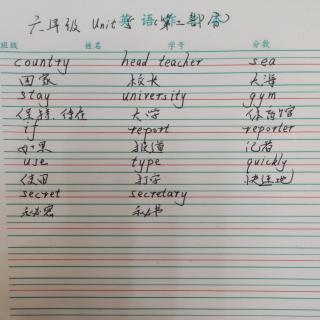 六年级 Unit 英语(第二部份)
班级 姓名 学号 分数
country head teacher sea
国家 校长 大海
stay university gym
保持、待在 大学 体育馆
if report reporter
如果 报道 记者
use type quickly
使用 打字 快速地
secret secretary
秘密 秘书